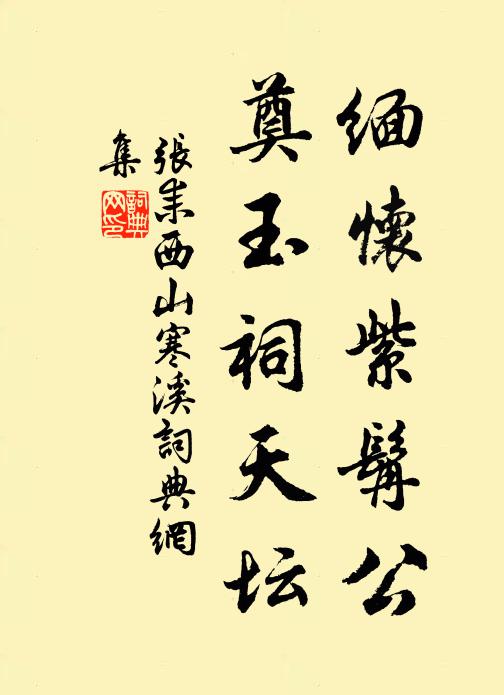 緬懷紫髯公
奠玉祠天坛
張耒西山寒溪詞典網
集
詞典网印